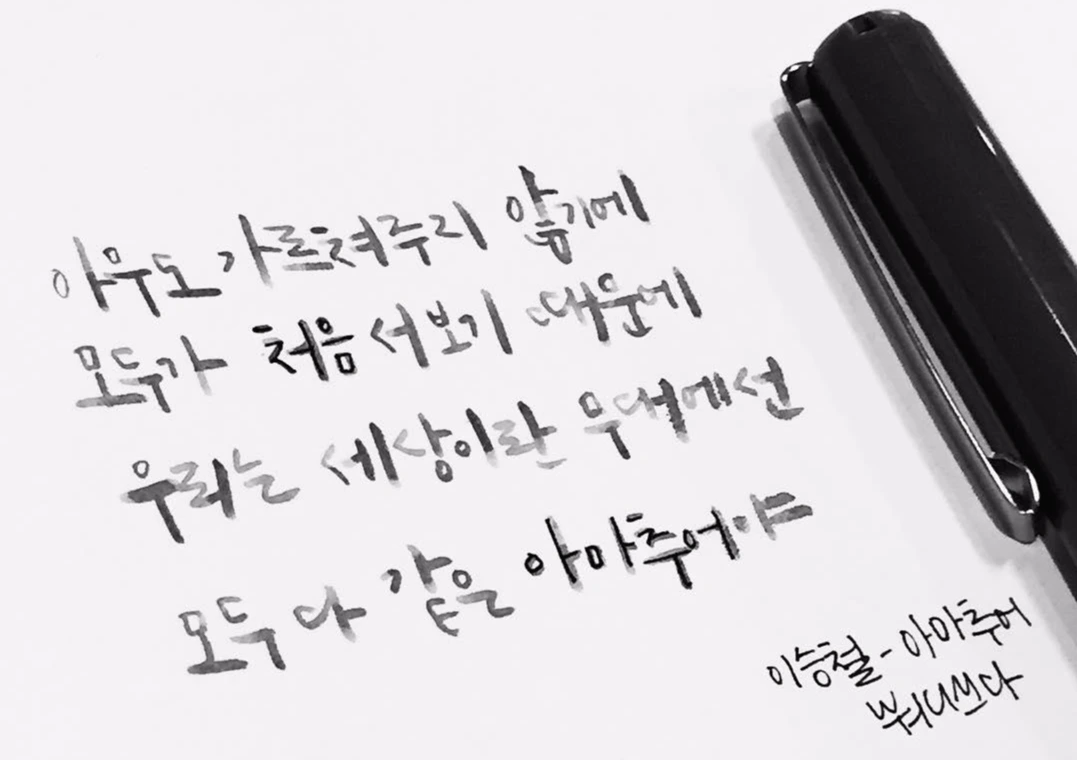 아무도 가르쳐주지 않기에
모두가 처음 서보기 때문에
우리는 세상이란 무대에선
모두 다 같은 아마추어야
이승철-아마추어
쒀니쓰다